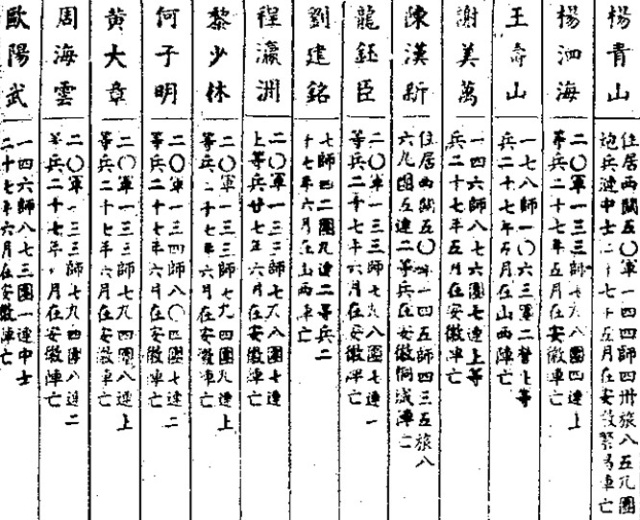 楊青山
住居西關五〇軍一四四師四卅旅八五九團
炮兵連中士二十七年五月在安徽繁昌陣亡
楊泗海
二〇軍一三三師七九八團四連上
等兵二十七年五月在安徽陣亡
王壽山
一七八師一〇六三軍二營七等
兵二十七年五月在山西陣亡
謝美萬
一四六師八七六團七連上等
兵二十七年五月在安徽陣亡
陳漢新
住居西關五〇軍一四五師四三五旅八
六九團五連二等兵在安徽桐城陣亡
龍鈺臣
二〇軍一三三師七九八團七連一
等兵二十七年六月在安徽陣亡
劉建銘
七師四二團九連二等兵二
十七年六月在山西陣亡
程瀛洲
二〇軍一三三師七九八團七連
上等兵廿七年六月在安徽陣亡
黎少休
二〇軍一三三師七九四團九連上
等兵二十七年六月在安徽陣亡
何子明
二〇軍一三四師八〇四團七連二
等兵二十七年六月在安徽陣亡
黃大章
二〇軍一三三師七九四團八連上
等兵二十七年六月在安徽陣亡
周海雲
二〇軍一三三師七九四團八連二
等兵二十七年六月在安徽陣亡
歐陽武
一四六師八七三團一連中士
二十七年六月在安徽陣亡